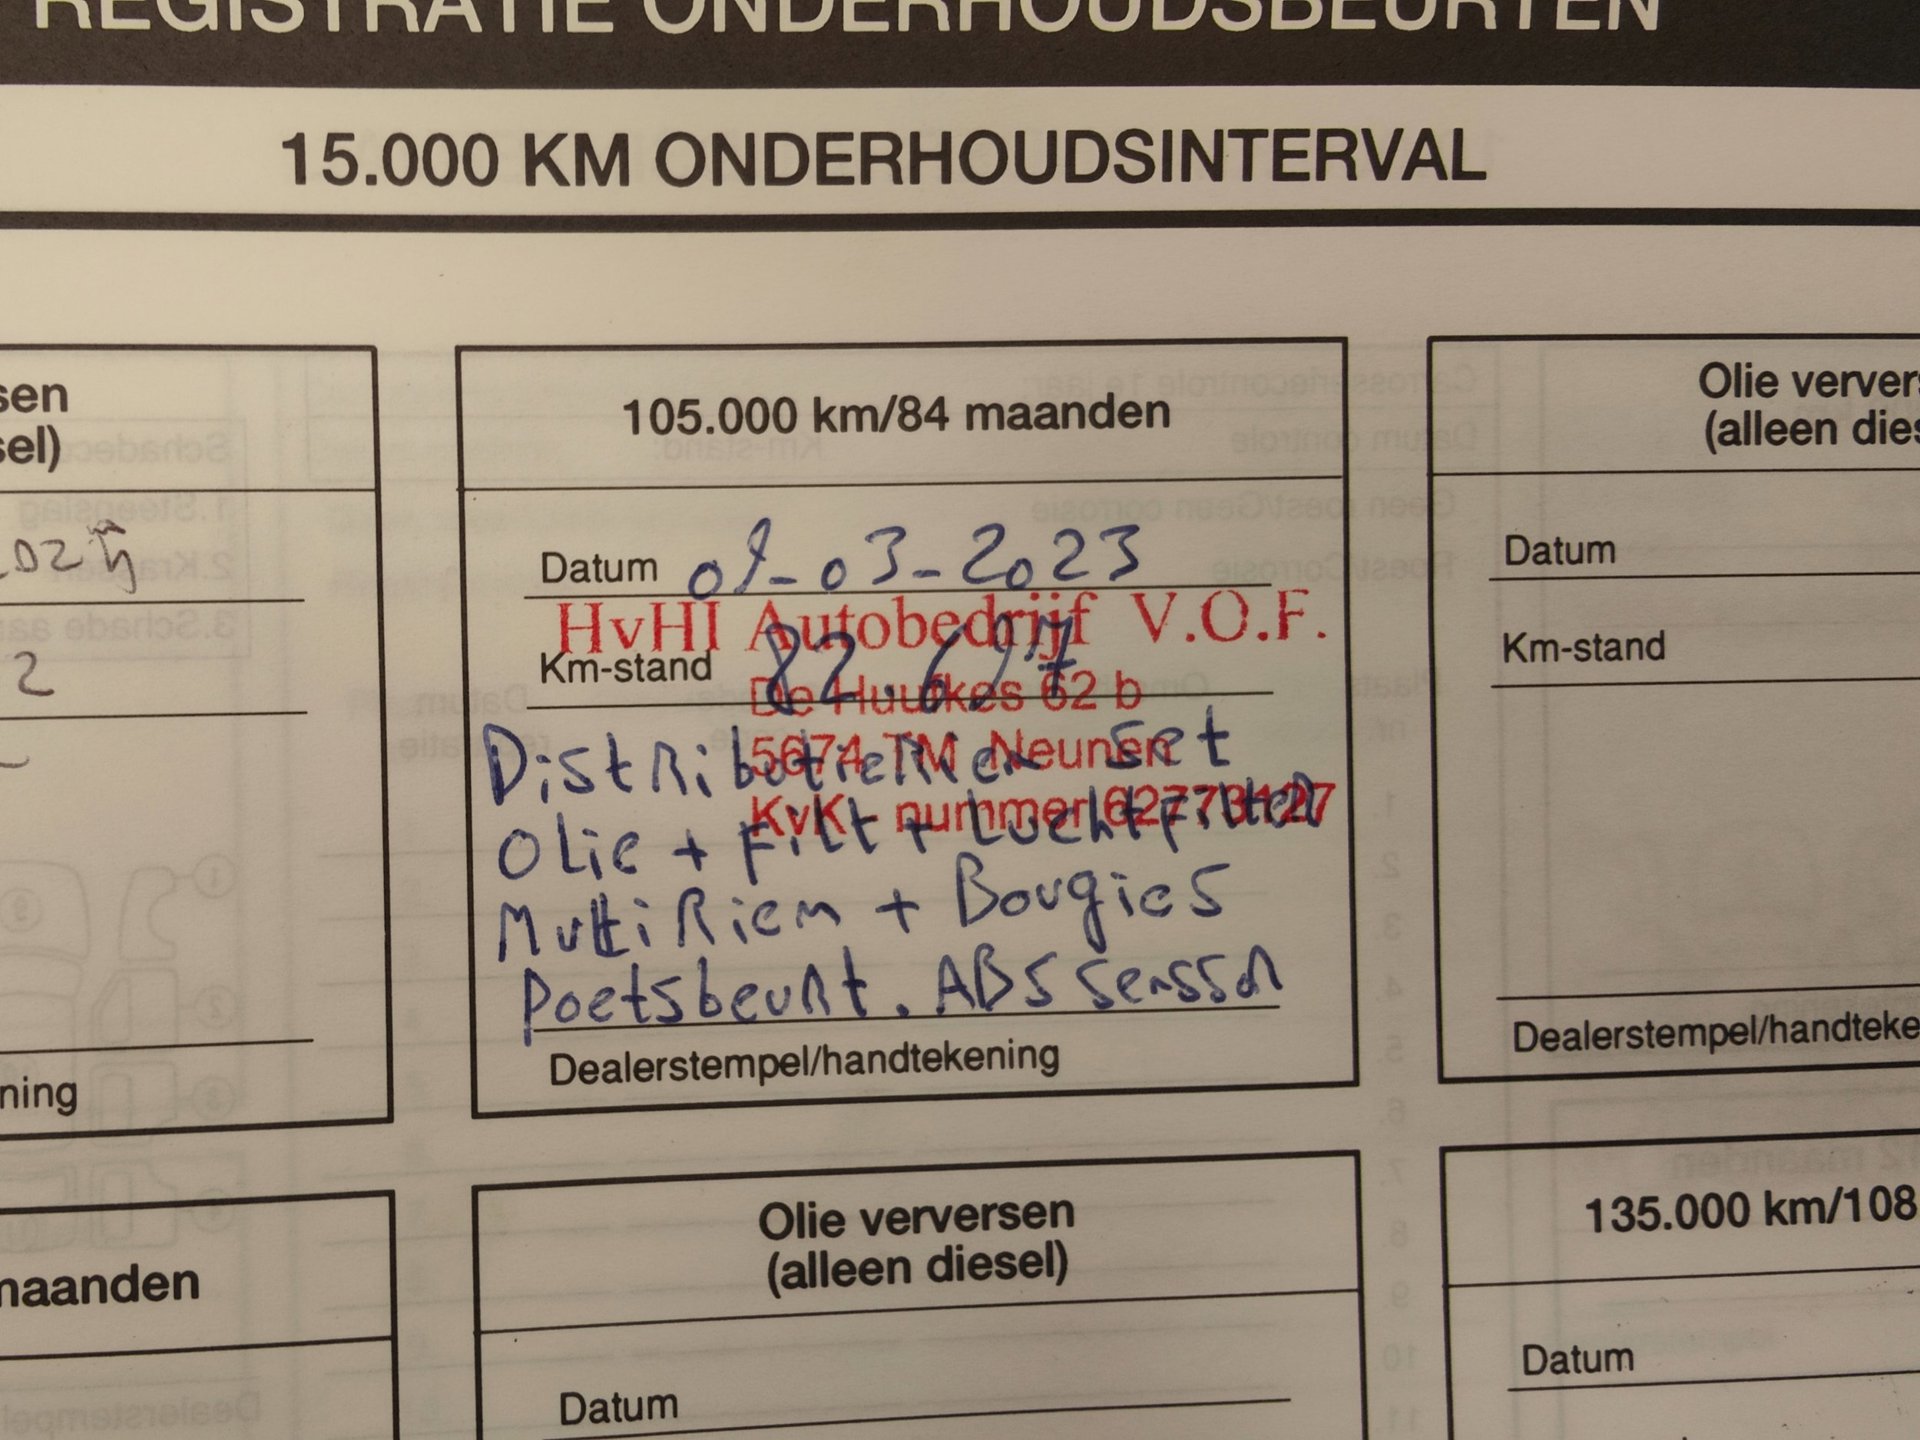 REGISTRATIE ONDERHOUDSBEURTEN
15.000 KM ONDERHOUDSINTERVAL
sen
sel)
2
ning
maanden
105.000 km/84 maanden
Datum 03-2023
HvHI Autobedrijf V.O.F.
Km-stand 82.697
De Huufkes 62 b
5674 TM Neunen
KvK - nummer 62773127
Distributieriem set
Olie + Filt + Luchtfilter
MultiRiem + Bougies
Poetsbeurt. ABS senssor
Dealerstempel/handtekening
Olie verversen
(alleen diesel)
Datum
Olie ververs
(alleen dies
Datum
Km-stand
Dealerstempel/handteke
135.000 km/108
Datum